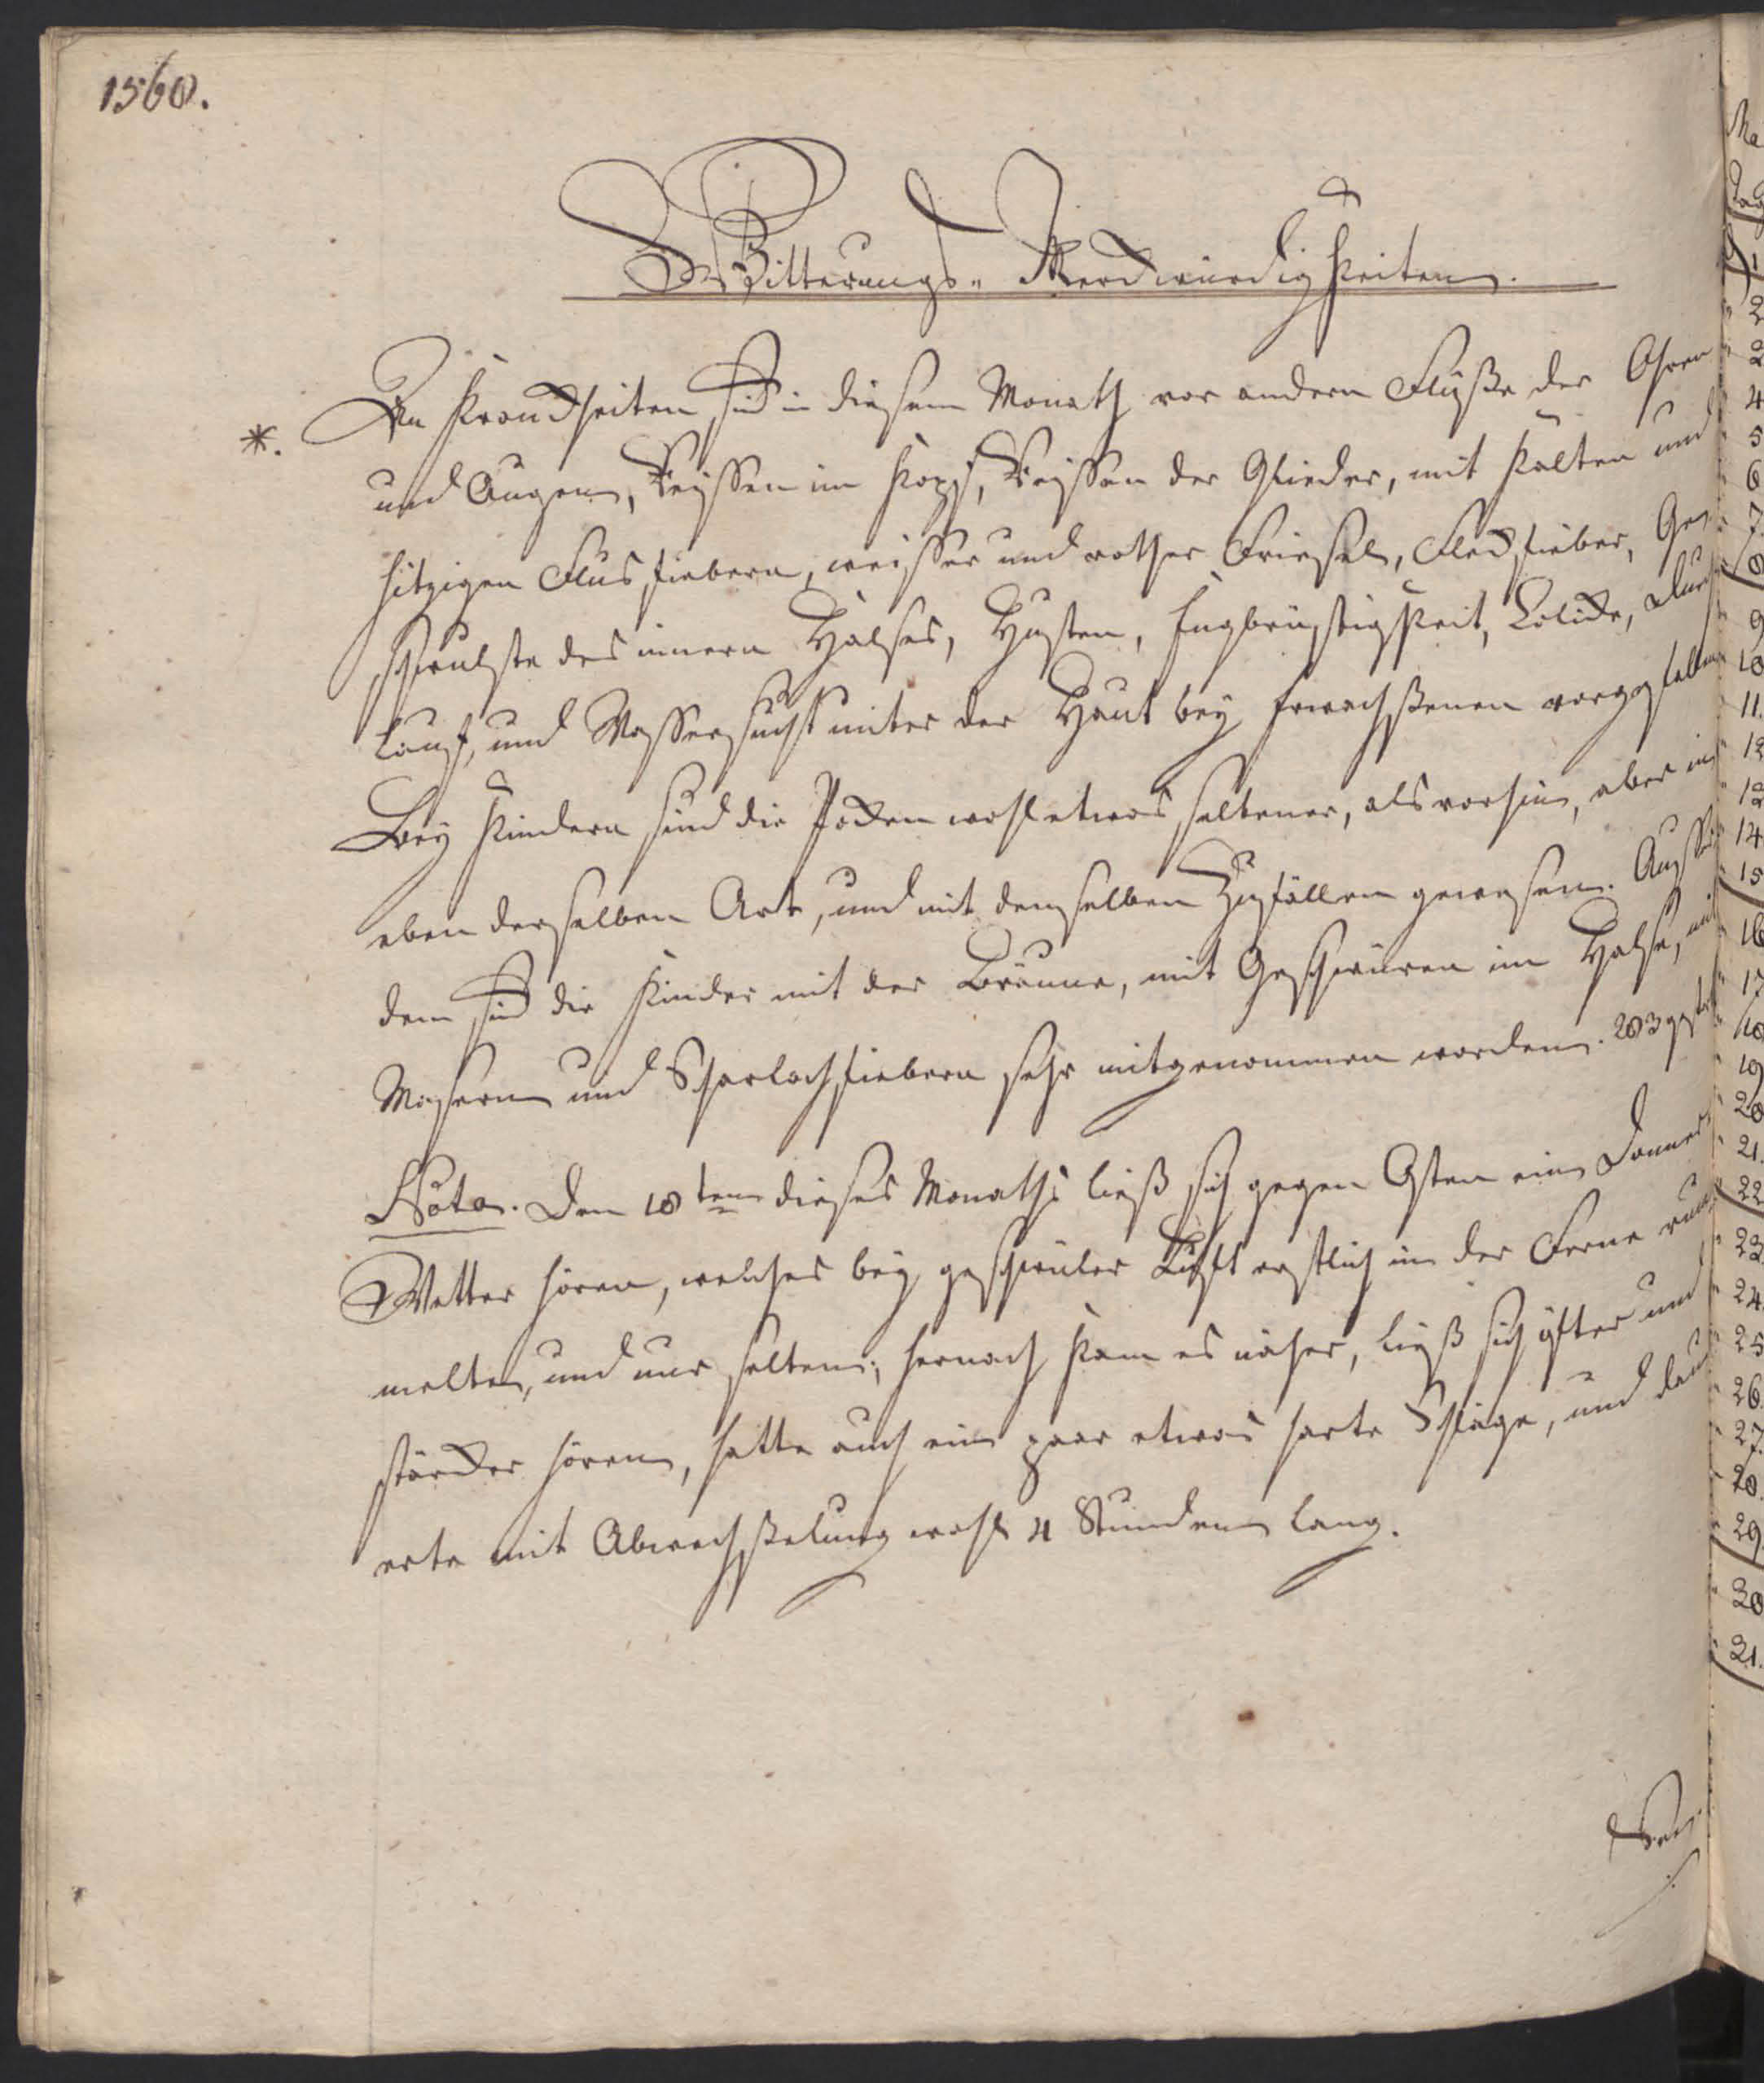 1560.
Witterungs-Merckwürdigkeiten.
*. An Kranckheiten sind in diesem Monath vor andern Flüße der Ohren
und Augen, Reissen im Kopf, Reissen der Glieder, mit kalten und
hitzigen Flusfiebern, weisser und rother Friesel, Fleckfieber, Ge-
schwulste des innern Halses, Husten, Engbrüstigkeit, Colicke, Durch
lauf, und Wassersucht unter der Haut bey Erwachßenen vorgefallen
Bey Kindern sind die Pocken wohl etwas seltener, als vorhin, aber in
eben derselben Art, und mit denselben Zufällen gewesen. Ausser
dem sind die Kinder mit der Bräune, mit Geschwüren im Halse, mit
Masern und Scharlachfiebern sehr mitgenommen worden. 283 gest
Nota. Den 18ten dieses Monaths ließ sich gegen Osten ein Donner
Wetter hören, welches bey geschwüler Luft erstlich in der Ferne rum
melte, und nur selten; hernach kam es näher, ließ sich öfter und
stärcker hören, hatte auch ein paar etwas harte Schläge, und dau
erte mit Abwechßelung wohl 4 Stunden lang.
Ma
Tag
1
2
3
4
5
6
7.
8
9
10
11.
12
13
14
15
16
17
18
19
20
21.
22
23
24
25
26.
27.
28.
29.
30
31.